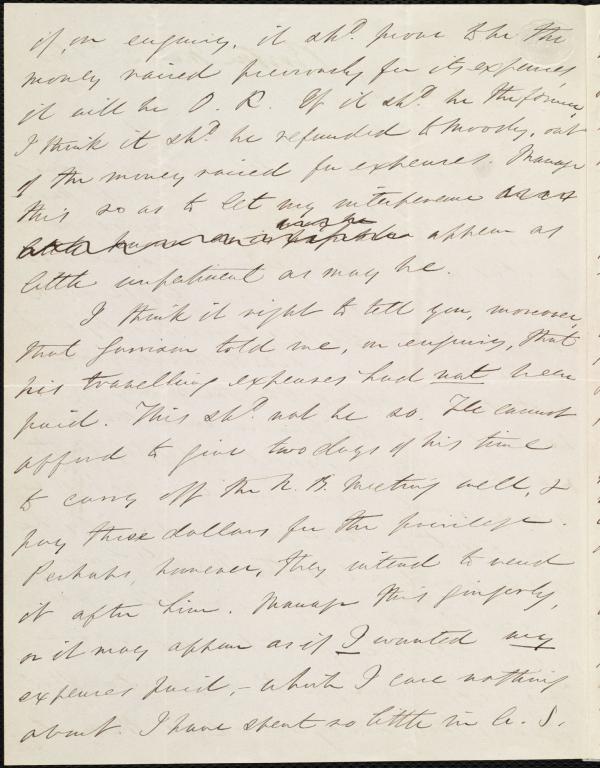 if, on enquiry, it shd. prove to be the
money raised previously for its expenses,
it will be O. K. If it shd. be the former,
I think it shd. be refunded to Moody, out
of the money raised for expenses. Manage
this so as to let my interference
appear as
little impertinent as may be.
I think it right to tell you, moreover,
that Garrison told me, on enquiry, that
his travelling expenses had not been
paid. This shd. not be so. He cannot
afford to give two days of his time
to carry off the N. B. Meeting well, &
pay three dollars for the privilege.
Perhaps, however, they intend to send
it after him. Manage this gingerly,
or it may appear as if I wanted my
expenses paid, - which I care nothing
about. I have spent so little in A. S.